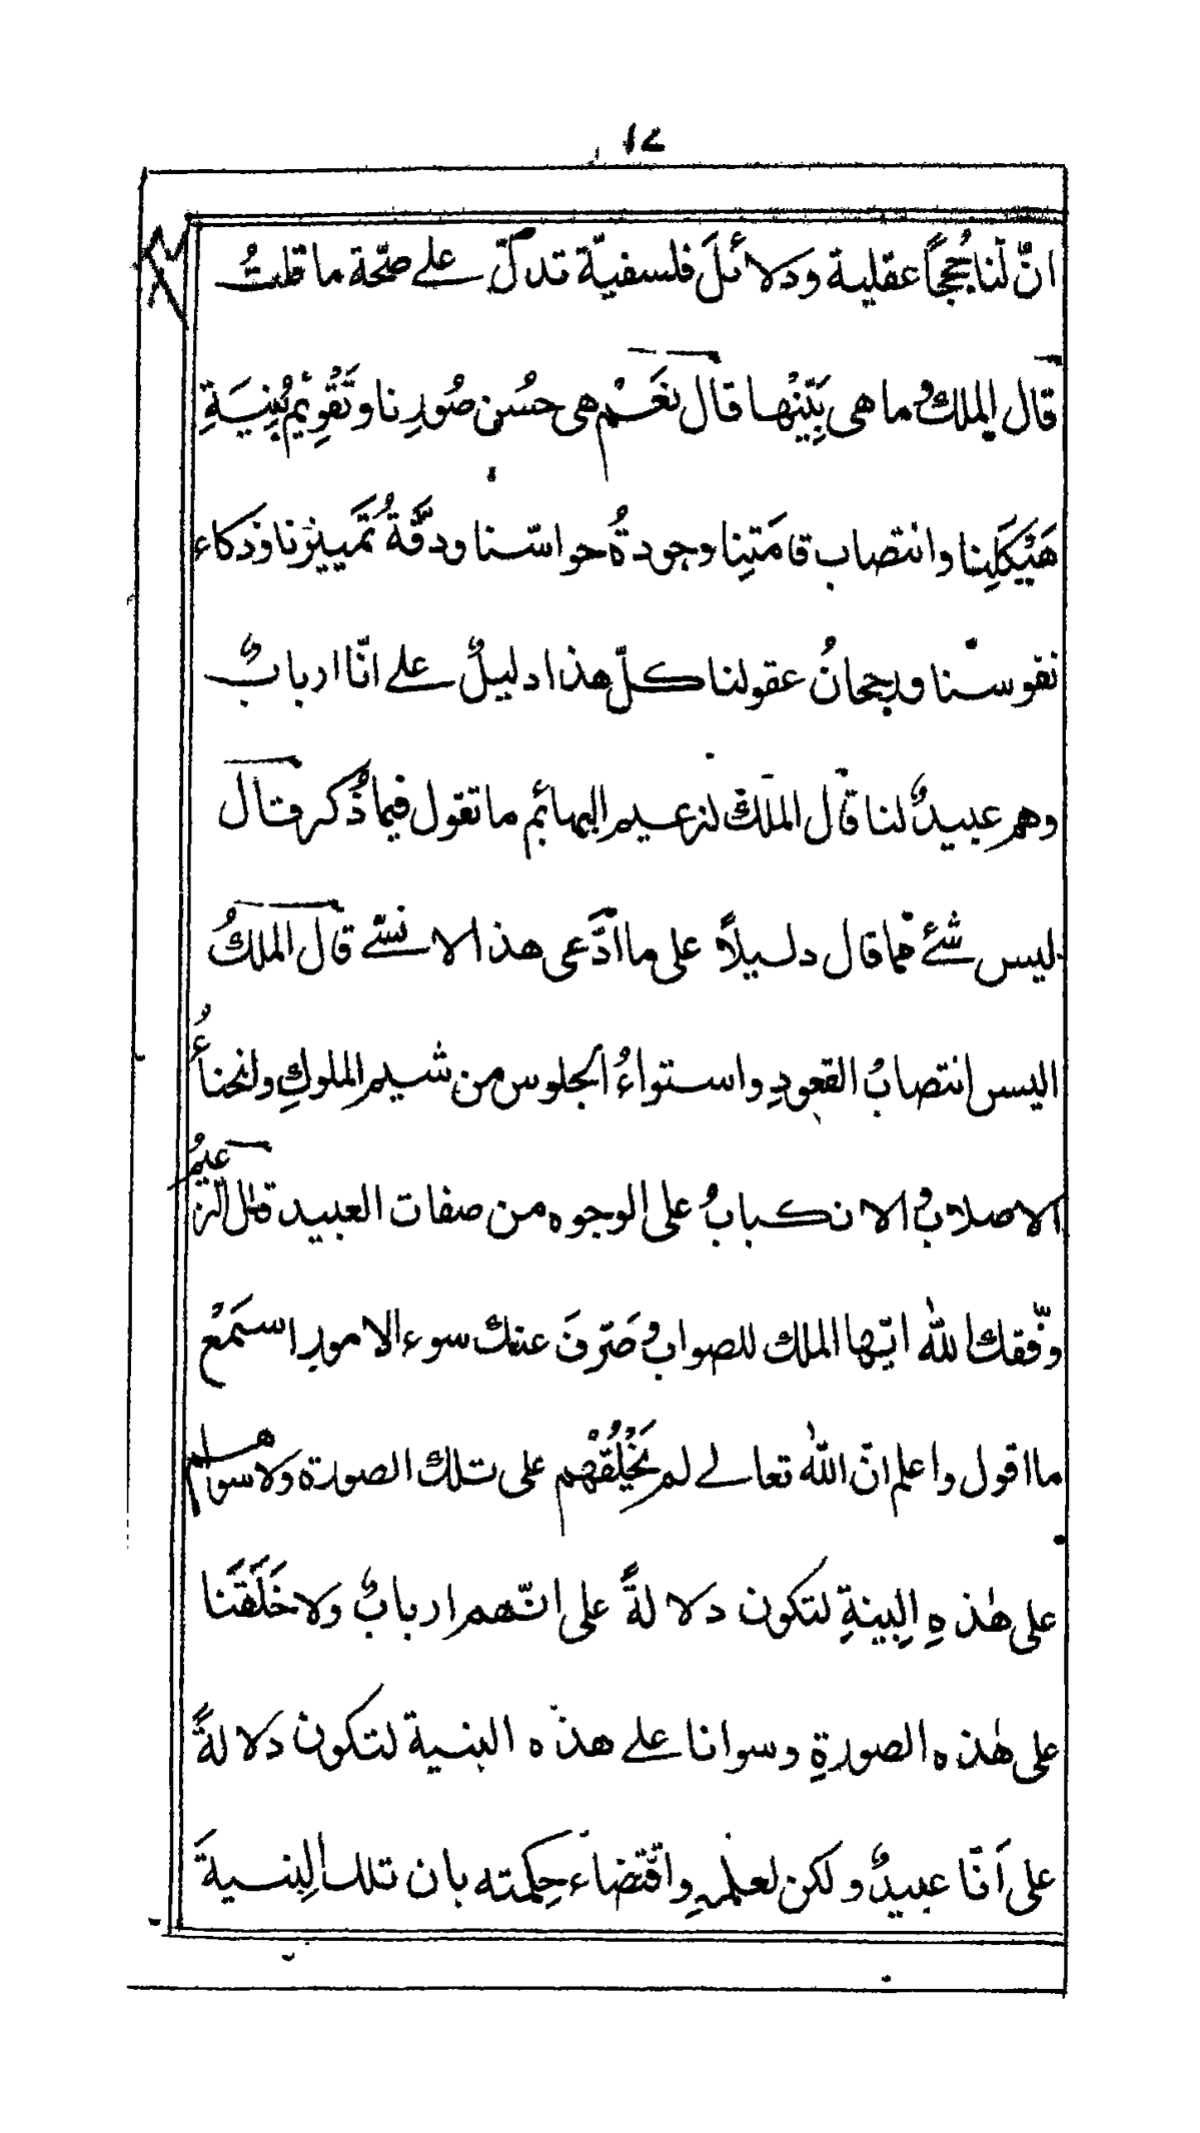 ١٢
انّ لَنا حُججًا عقلية ودلائلَ فلسفيّة تدلّ علے صحّة ما قلتُ
قال الملكُ وما هى بَيِّنْها قال نَعَمْ هى حسُن صُورِنا وتَقْوِيْمُ بُنِيَةِ
هَيْكَلِنا وانتصاب قامَتِنا وجودةُ حواسّنا ودقّةُ تَمييزنا وذكاء
نفوسنا ورجحانُ عقولنا كلّ هذا دليلٌ علے انّا اربابٌ
وهم عبيدٌ لنا قال الملك لزعيم البهائم ما تقول فيما ذُكر فقال
ليس شئے مما قال دليلاً على ما ادَّعى هذا الانسّے قال الملكُ
اليس انتصابُ القعودِ واستواءُ الجلوس من شيم الملوكِ وانحناءُ
الاصلابِ والانكبابُ على الوجوه من صفات العبيد قال الزعيمُ
وفّقك الله ايّها الملك للصواب وصَرَفَ عنك سوء الامور استَمعْ
ما اقول واعلم انّ الله تعالے لم يَخْلُقْهُم على تلك الصورة ولا سواهم
على هٰذهِ البِينةِ لتكون دلالةً على انّهم اربابٌ ولا خَلَقَنا
على هٰذه الصورةِ وسوانا علے هذه البنية لتكون دلالةً
على اَنّا عبيدٌ ولكن لعلمهِ واقتضاء حِكمته بان تلك البِنسيةَ